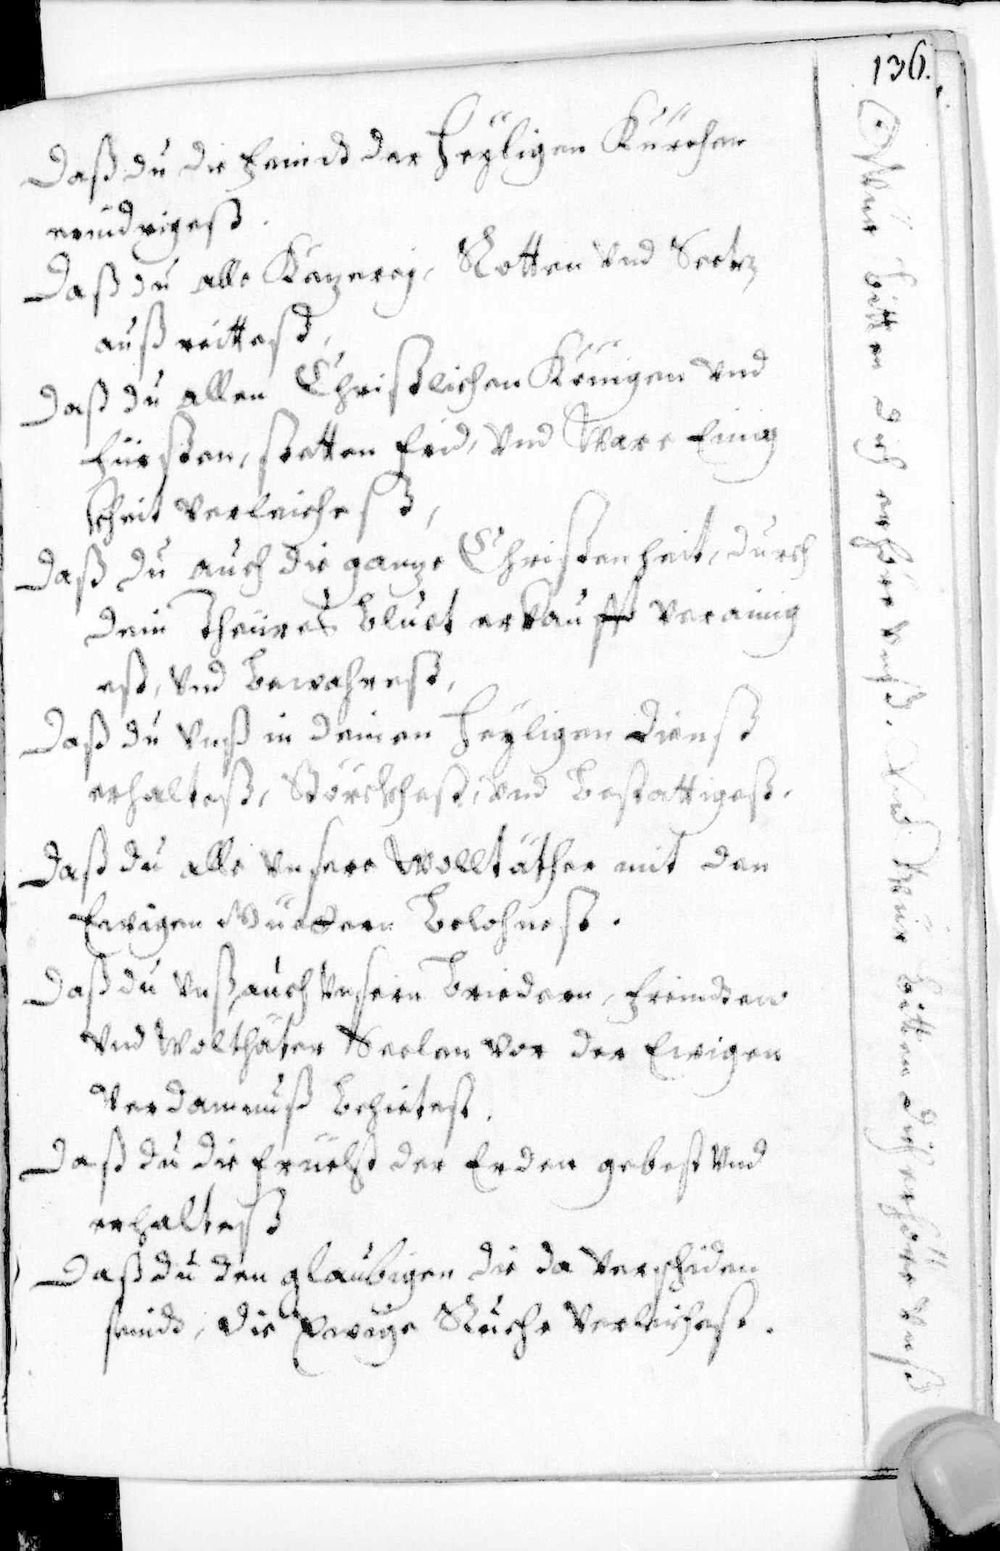 136.
Daß du die feindt der Heyligen Kürchen
ernidrigest.
Daß du alle Kezerey, Rotten Vnd Sect
auß reittest,
Daß du allen Christlichen Königen Vnd
fürsten, stetten frid, Vnd Ware Einig
kheit Verleichest,
Daß du auch die ganze Christenheit, durch
dein Theüres bluet erkaufft Verainig
est, Vnd bewahrest,
Daß du Vnß in deinen Heyligen dienst
erhaltest, Störckhest, Vnd bestattigest.
Daß du alle Vnsere Wolltäther mit den
Ewigen Güettern belohnest.
Daß du Vnß, auch Vnsern briedern, freindten
Vnd Wolthäter Seelen Vor der Ewigen
Verdamnuß behietest.
Daß du die fruchst der Erden gebest Vnd
erhaltest
Daß du den glaubigen die da Verschiden
seindt, die Ewige Ruehe Verleichest.
Wür bitten dich erhöre vnß. Wür bitten dich erhöre vnß